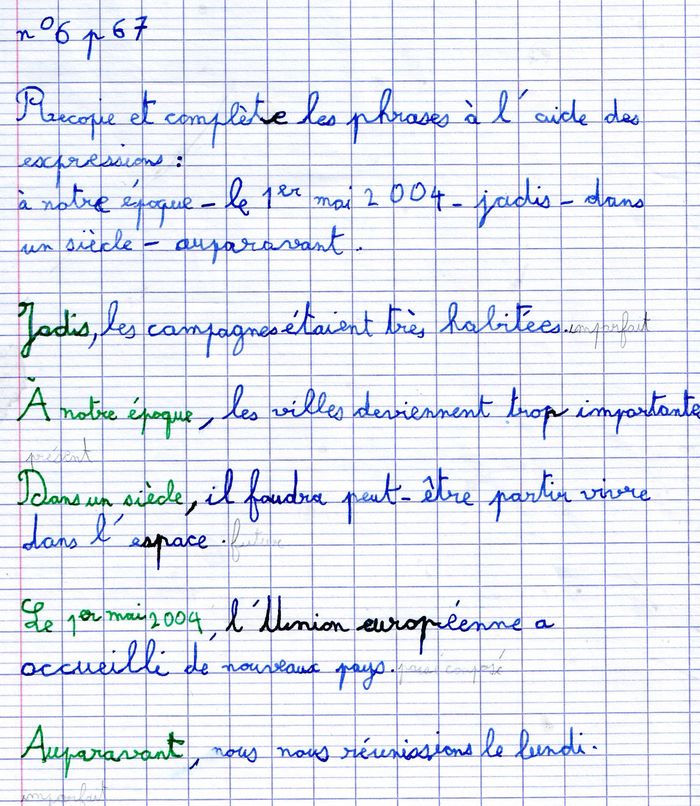 n°6 p 67
Recopie et complète les phrases à l'aide des
expressions :
à notre époque - le 1er mai 2004 - jadis - dans
un siècle - auparavant.
Jadis, les campagnes étaient très habitées. imparfait
À notre époque, les villes deviennent trop importante
présent
Dans un siècle, il faudra peut-être partir vivre
dans l'espace. futur
Le 1er mai 2004, l'Union européenne a
accueilli de nouveaux pays. passé composé
Auparavant, nous nous réunissions le lundi.
imparfait